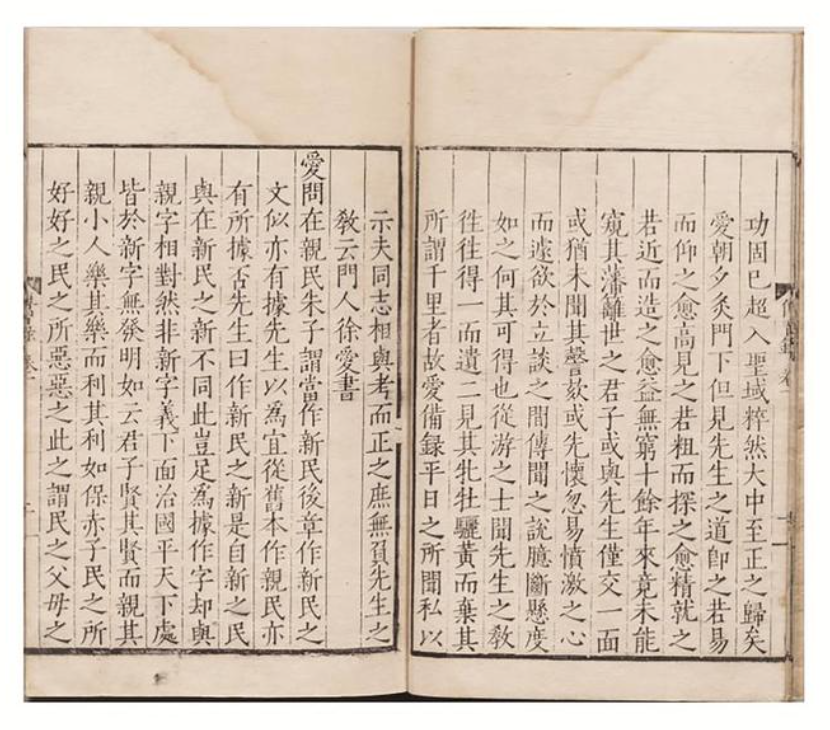 功固已超入聖域粹然大中至正之歸矣
愛朝夕炙門下但見先生之道卽之若易
而仰之愈高見之若粗而探之愈精就之
若近而造之愈益無窮十餘年來竟未能
窺其藩籬世之君子或與先生僅交一面
或猶未聞其謦欬或先懷忽易憤激之心
而遽欲於立談之間傳聞之說臆斷懸度
如之何其可得也從游之士聞先生之敎
徃徃得一而遺二見其牝牡驪黃而棄其
所謂千里者故愛備録平日之所聞私以
示夫同志相與考而正之庶無負先生之
敎云門人徐愛書
愛問在親民朱子謂當作新民後章作新民之
文似亦有據先生以爲宜從舊本作親民亦
有所據否先生曰作新民之新是自新之民
與在新民之新不同此豈足爲據作字却與
親字相對然非新字義下面治國平天下處
皆於新字無發明如云君子賢其賢而親其
親小人樂其樂而利其利如保赤子民之所
好好之民之所惡惡之此之謂民之父母之